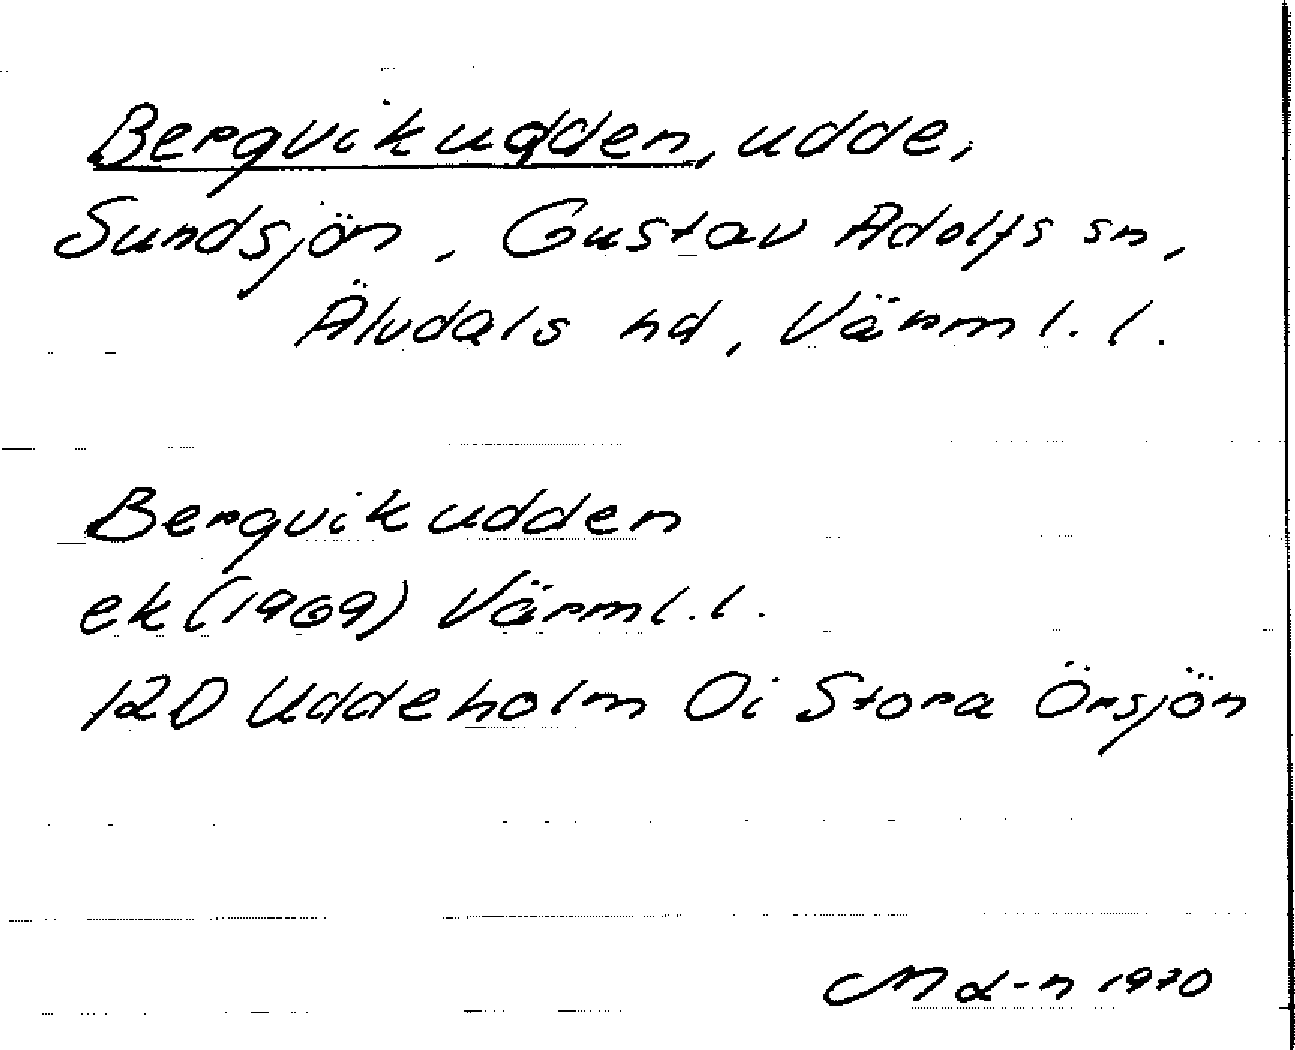 Bergvikudden, udde,
Sundsjön, Gustav Adolfs sn,
Älvdals hd, Värml. l.
Bergvikudden
ek (1969) Värml. l.
12D Uddeholm 0i Stora Örsjön
Md-n 1970